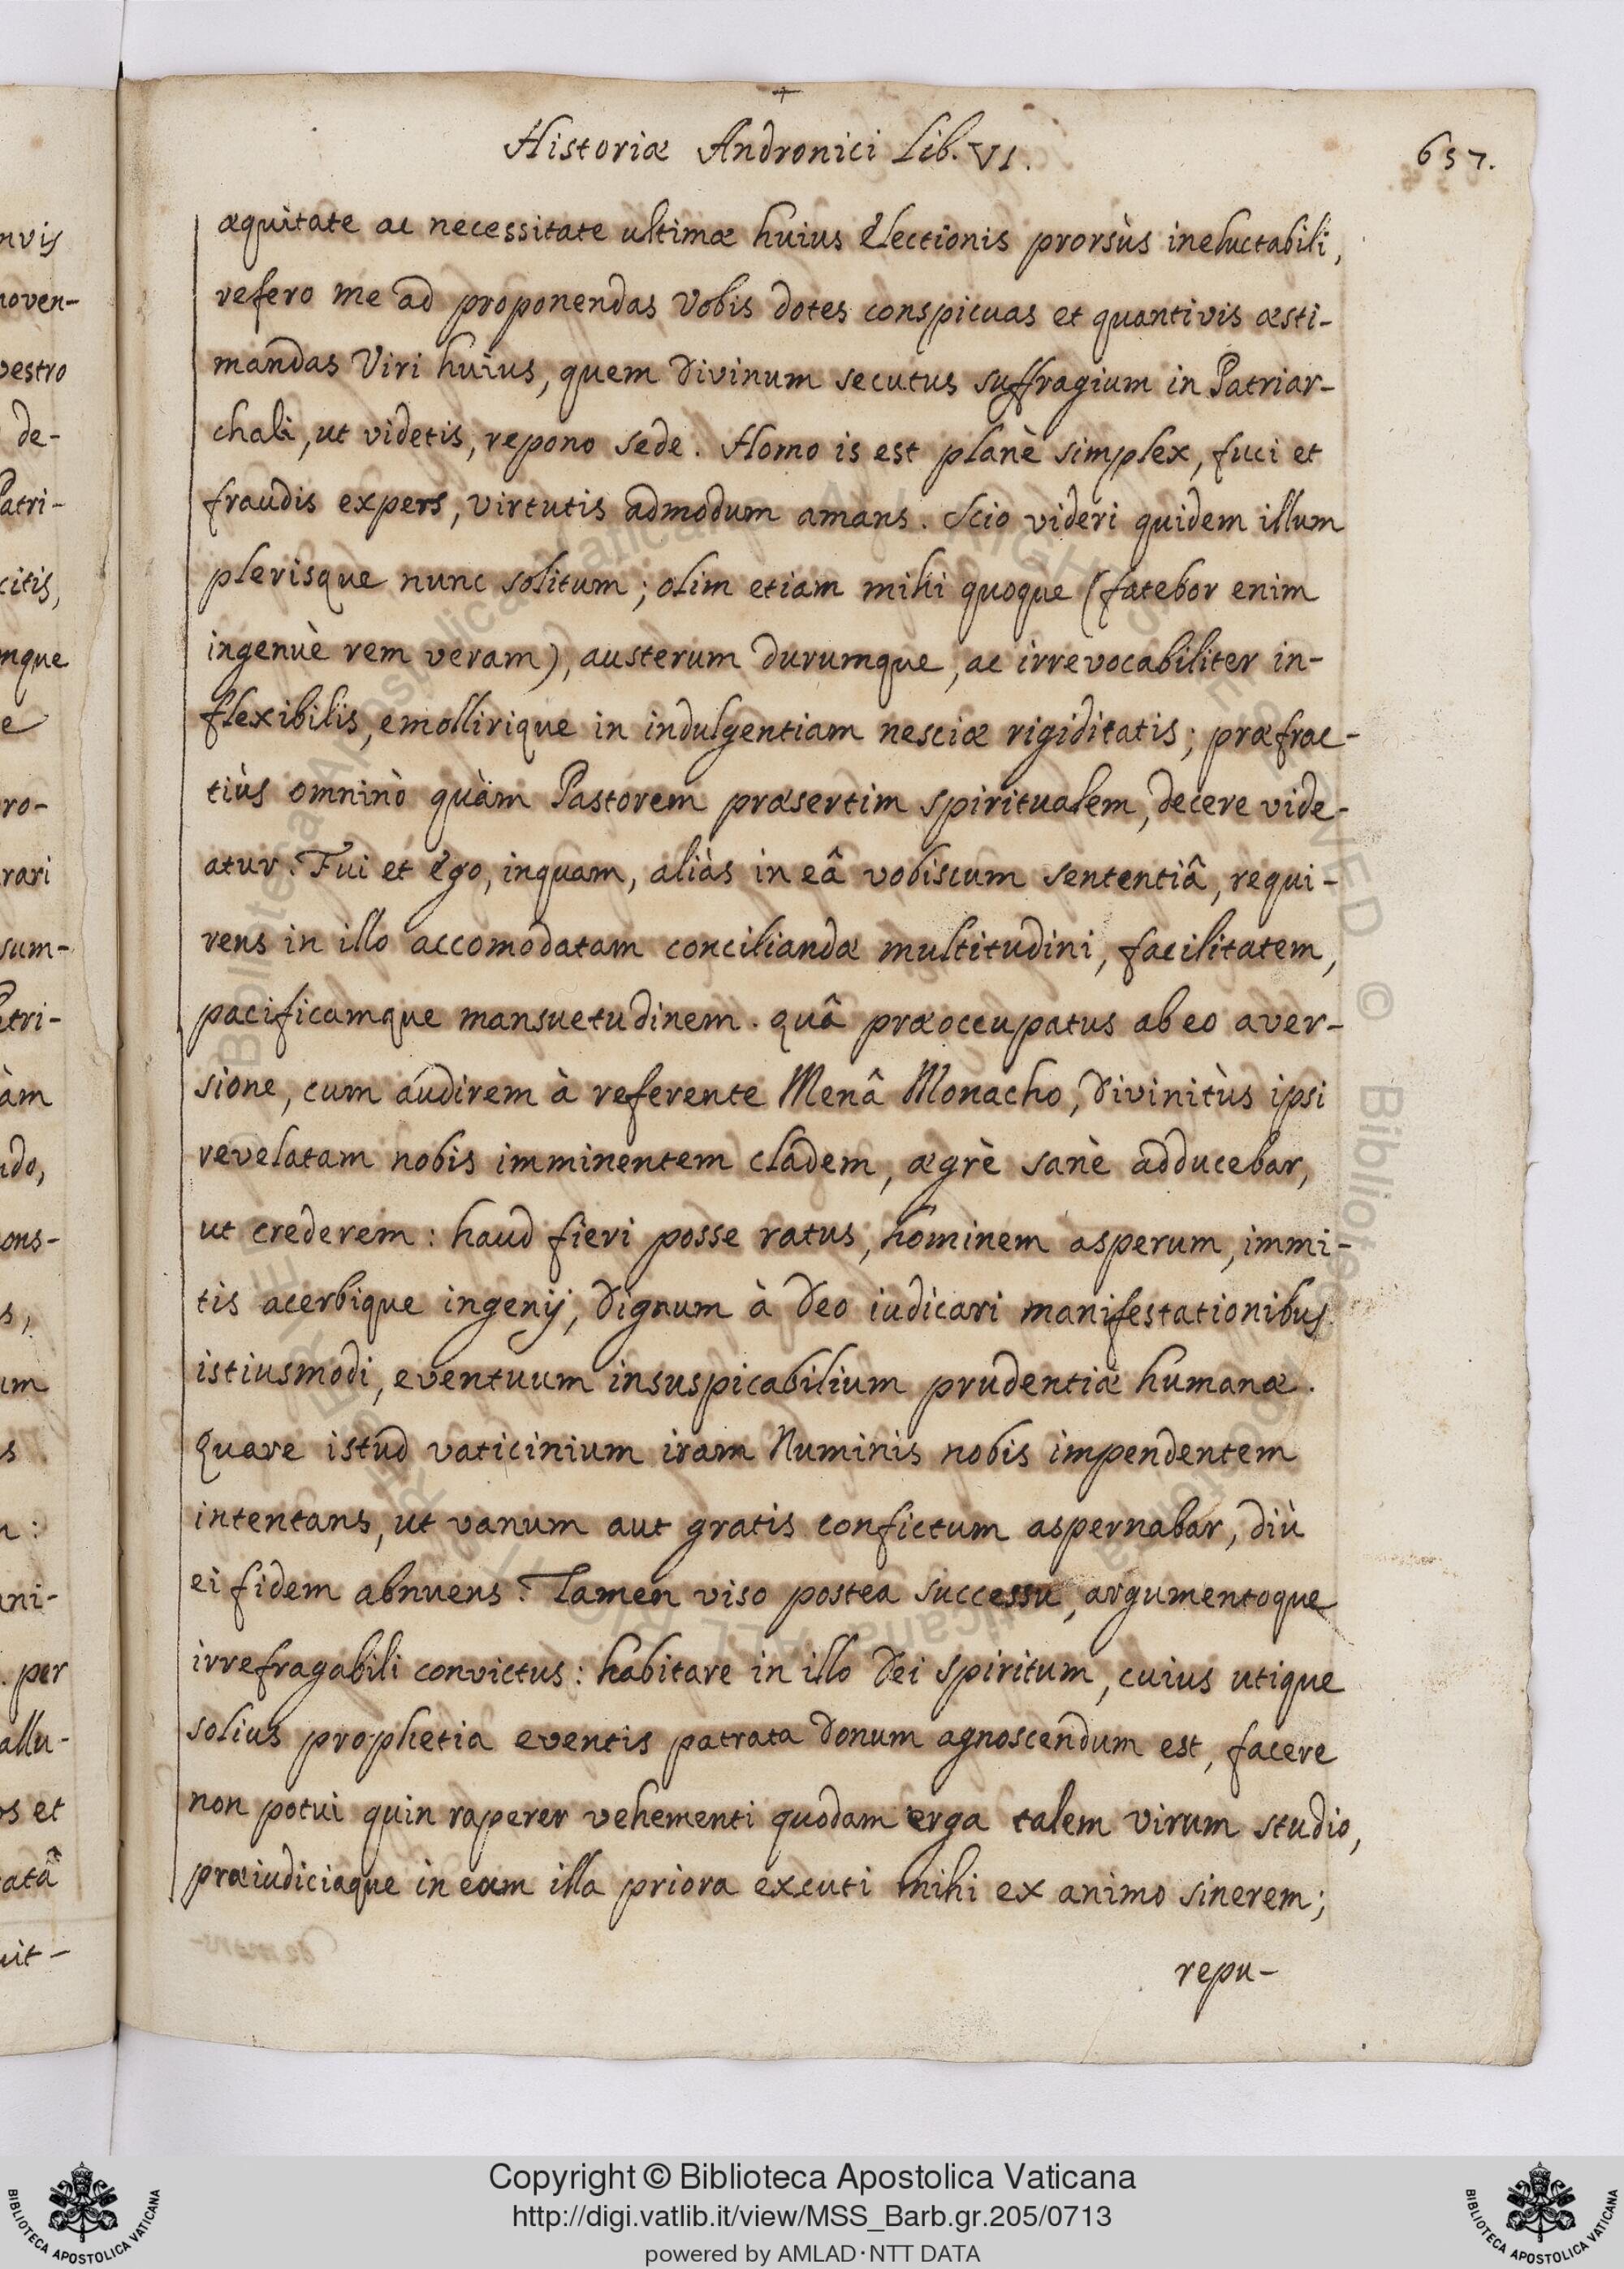 Historiæ Andronici Lib. VI.
657.
æquitate ac necessitate ultimæ huius Electionis prorsùs ineluctabili,
refero me ad proponendas Vobis dotes conspicuas et quantivis æsti-
mandas Viri huius, quem Divinum secutus suffragium in Patriar-
chali, ut videtis, repono sede. Homo is est planè simplex, fuci et
fraudis expers, virtutis admodum amans. Scio videri quidem illum
plerisque nunc solitum; olim etiam mihi quoque (fatebor enim
ingenuè rem veram), austerum durumque, ac irrevocabiliter in-
flexibilis, emollirique in indulgentiam nesciæ rigiditatis; præfrac-
tiùs omninò quàm Pastorem præsertim spiritualem, decere vide-
atur. Fui et ego, inquam, aliàs in eâ vobiscum sententiâ, requi-
rens in illo accomodatam conciliandæ multitudini, facilitatem,
pacificamque mansuetudinem. quâ præoccupatus ab eo aver-
sione, cum audirem à referente Menâ Monacho, Divinitùs ipsi
revelatam nobis imminentem cladem, ægrè sanè adducebar,
ut crederem: haud fieri posse ratus, hominem asperum, immi-
tis acerbique ingenij, dignum à Deo iudicari manifestationibus
istiusmodi, eventuum insuspicabilium prudentiæ humanæ.
Quare istud vaticinium iram Numinis nobis impendentem
intentans, ut vanum aut gratis confictum aspernabar, diù
ei fidem abnuens. Tamen viso postea successu, argumentoque
irrefragabili convictus: habitare in illo Dei Spiritum, cuius utique
solius prophetia eventis patrata donum agnoscendum est, facere
non potui quin raperer vehementi quodam erga talem virum studio,
præiudiciaque in eum illa priora excuti mihi ex animo sinerem;
repu-
nvis
noven-
vestro
de-
Patri-
citis,
mque
e
ro-
rari
sum-
tri-
àm
ndo,
ons-
s,
um
s
n:
ani-
per
allu-
os et
atâ
uit-
Copyright © Biblioteca Apostolica Vaticana
http://digi.vatlib.it/view/MSS_Barb.gr.205/0713
powered by AMLAD·NTT DATA
BIBLIOTECA APOSTOLICA VATICANA
BIBLIOTECA APOSTOLICA VATICANA